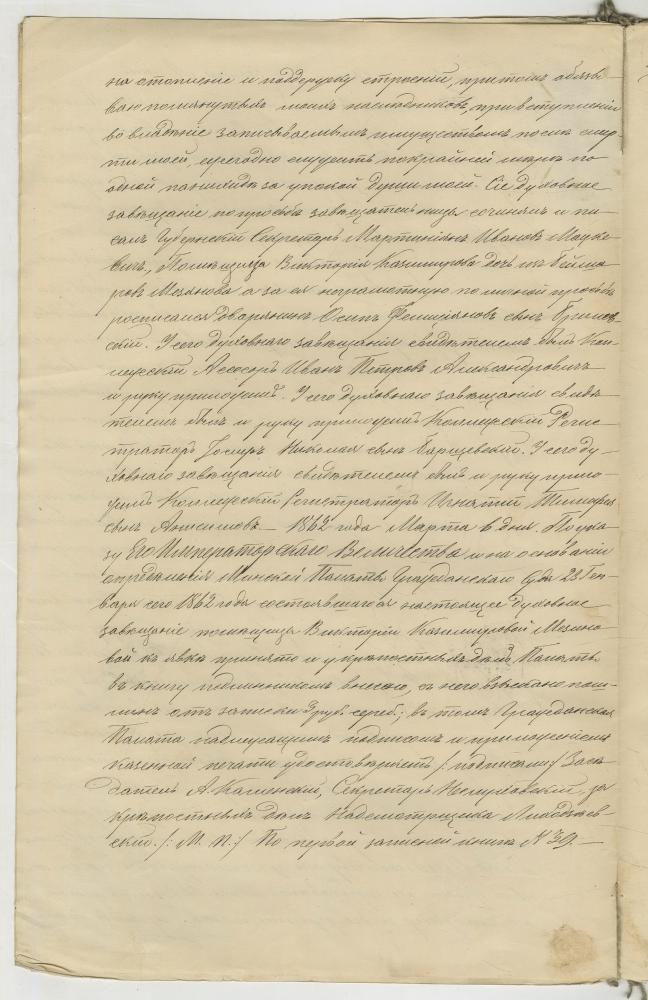 на отопленіе и поддержку строеній, притомъ обязы-
ваю помянутыхъ моихъ наслѣдниковъ, при вступленіи
во владѣніе записываемымъ имуществомъ послѣ смер-
ти моей, ежегодно служить покрайней мѣрѣ по
одной панихидѣ за упокой души моей. Сіе духовное
завѣщаніе по просьбѣ завѣщательницы сочинялъ и пи-
салъ Губернскій Секретарь Мартиніянъ Ивановъ Мацке-
вичъ, Помѣщица Викторія Казимирова дочь изъ
Мезанова а за ея неграмотную по личной просьбѣ
росписался дворянинъ Осипъ Фелиціяновъ сынъ
скій. У сего духовнаго завѣщанія свидѣтелемъ былъ Кол-
лежскій Асесоръ Иванъ Петровъ Александровичъ
и руку приложилъ. У сего духовнаго завѣщанія свидѣ-
телемъ былъ и руку приложилъ Коллежскій Регис-
траторъ Іосифъ Николая сынъ Барщевскій. У сего ду-
ховнаго завѣщанія свидѣтелемъ былъ и руку прило-
жилъ Коллежскій Регистраторъ Игнатій Тимофея
сынъ Анисимовъ — 1862 года Марта 6 дня. По ука-
зу Его Императорскаго Величества и на основаніи
опредѣленія Минской Палаты Гражданскаго Суда 28 Ген-
варя сего 1862 года состоявшагося настоящее духовное
завѣщаніе помѣщицы Викторіи Казимировой Мезано-
вой къ явкѣ принято и у крѣпостныхъ дѣлъ Палаты
въ книгу подлинникомъ внесено, съ него взыскано пош-
линъ отъ записки 3 руб. сереб.; въ томъ Гражданская
Палата надлежащимъ подписомъ и приложеніемъ
казенной печати удостовѣряетъ /:подписали:/ Засѣ-
датель А. Каменскій, Секретарь за
крѣпостныхъ дѣлъ Надсмотрщика
скій. /: М. П.:/ По первой записной книгѣ № 39. —